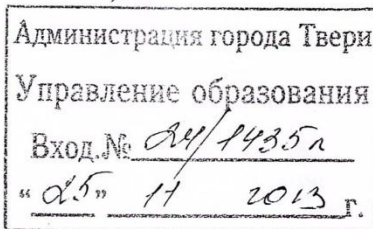 Администрация города Твери
Управление образования
Вход.№ 24/1435л
“25” 11 2013 г.